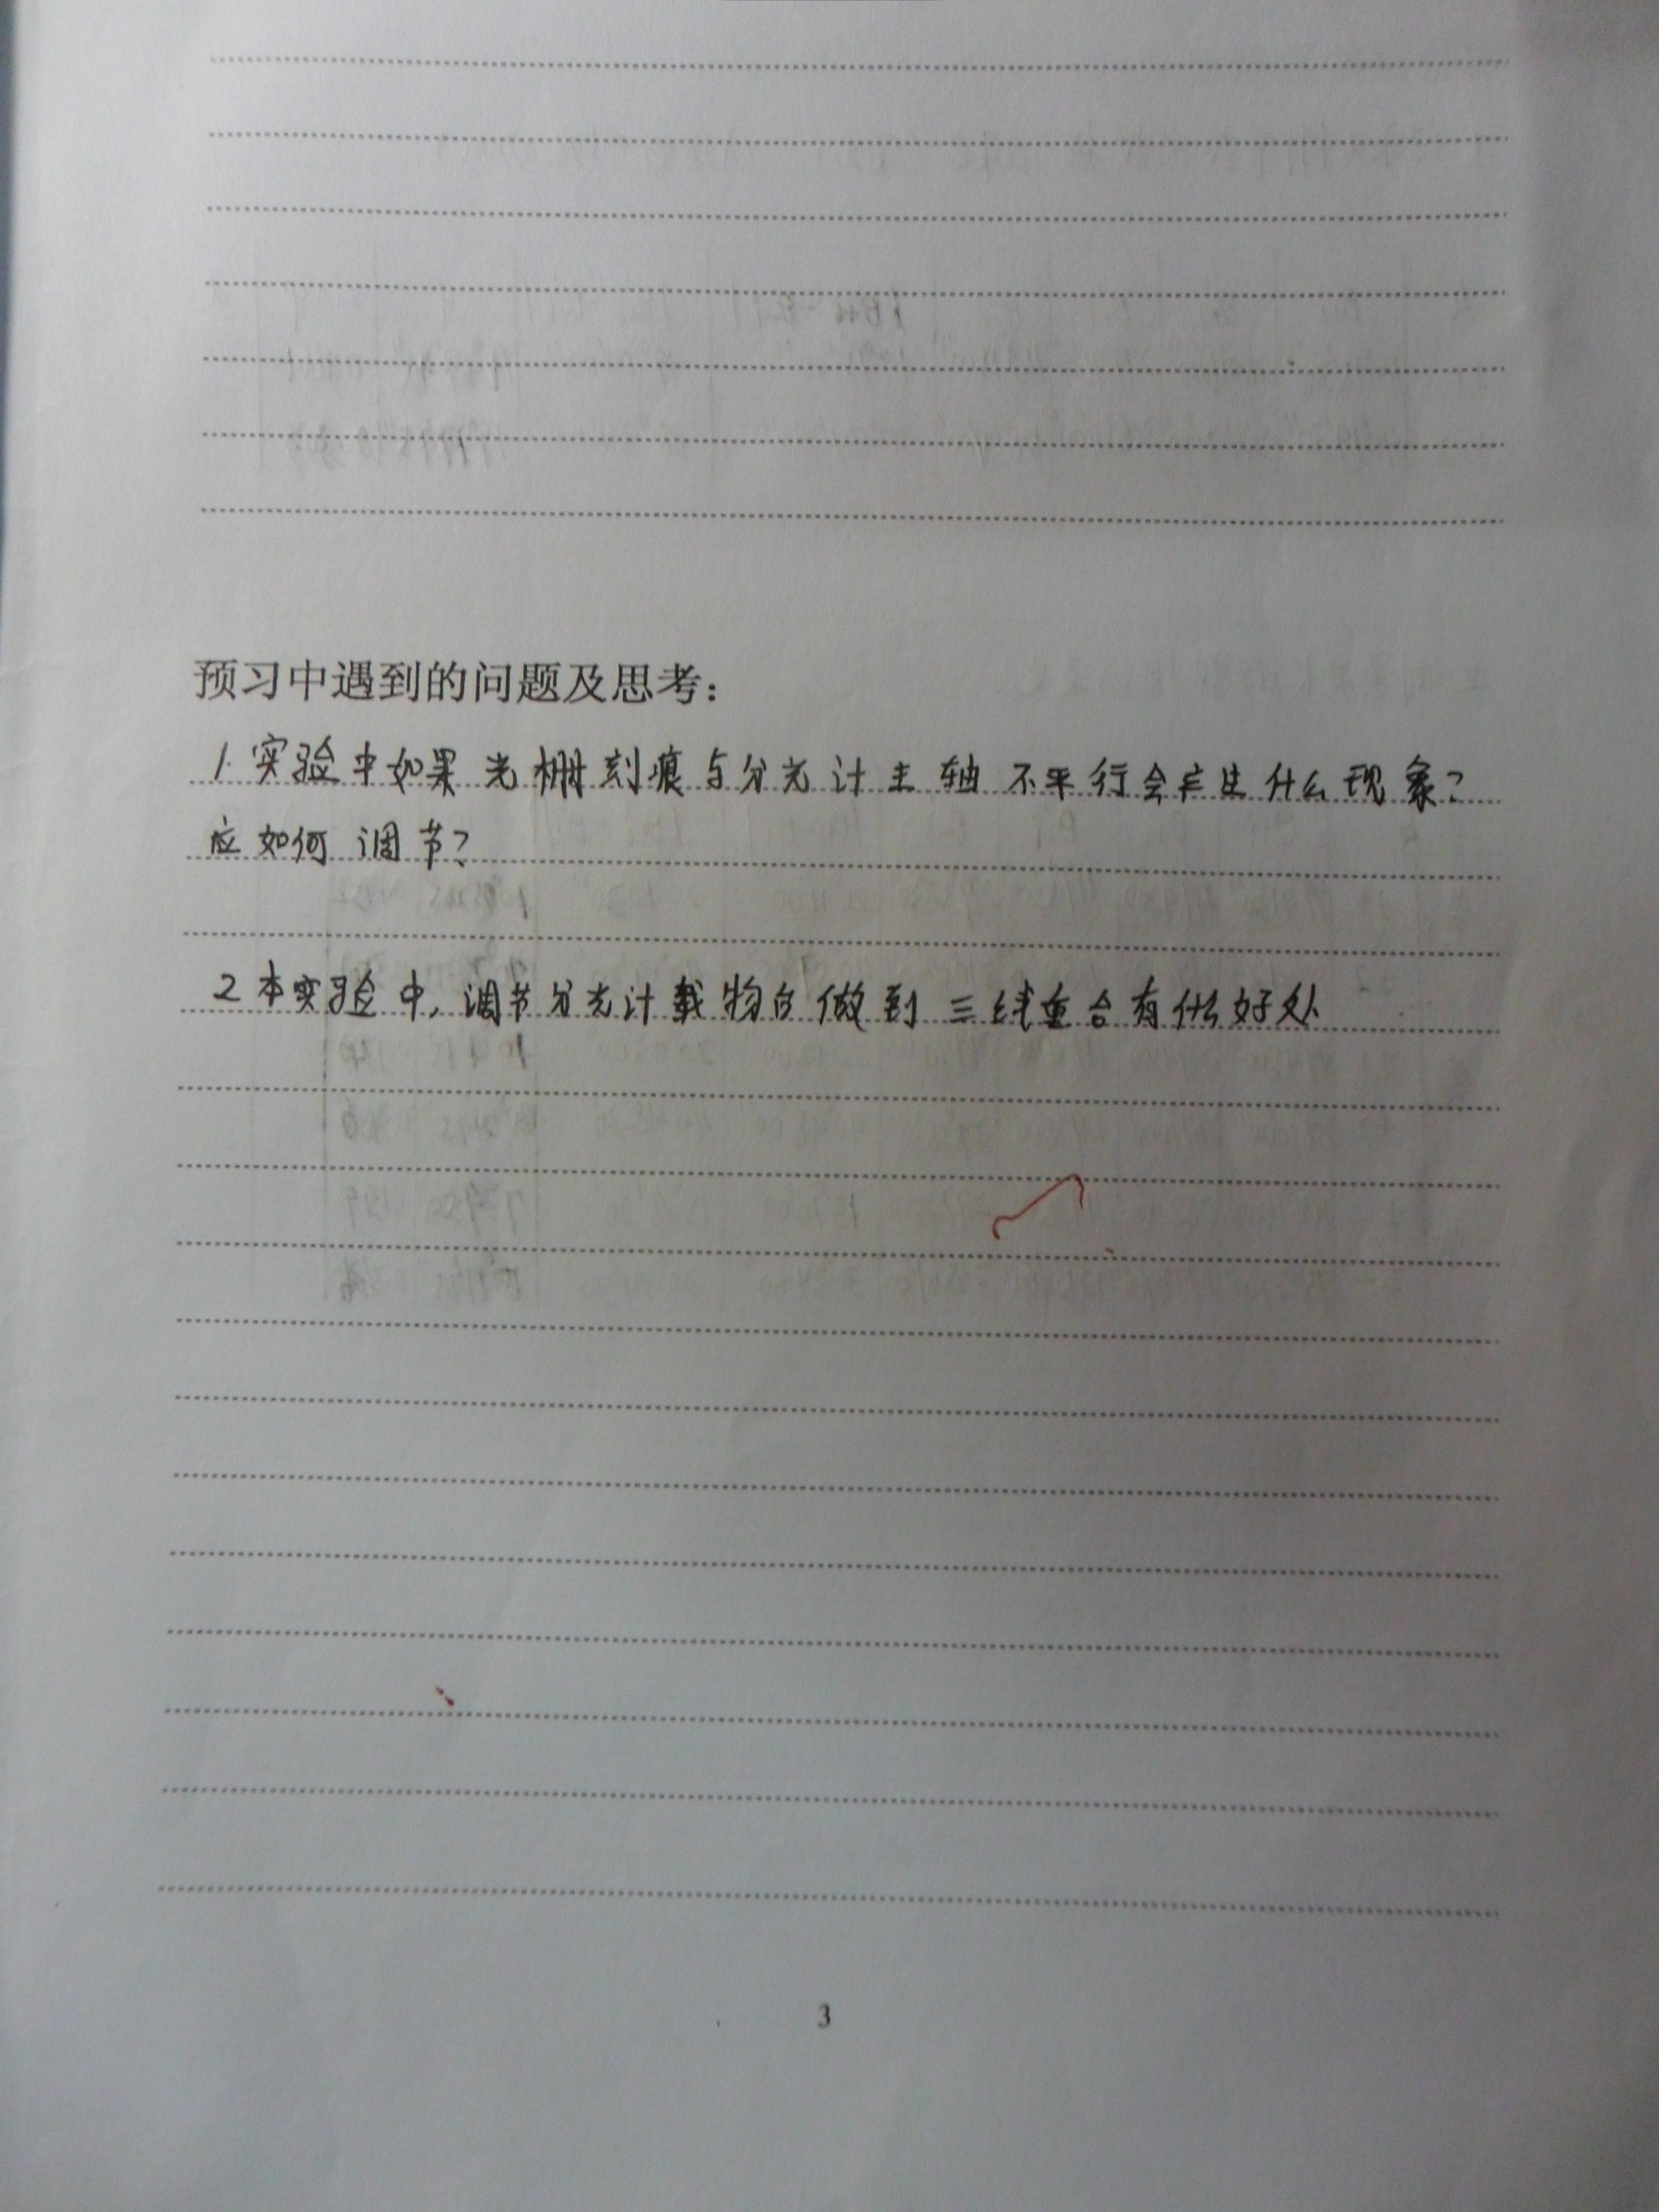 预习中遇到的问题及思考：
1.实验中如果光栅刻痕与分光计主轴不平行会产生什么现象？
应如何调节？
2本实验中，调节分光计载物台做到三线重合有什么好处
3